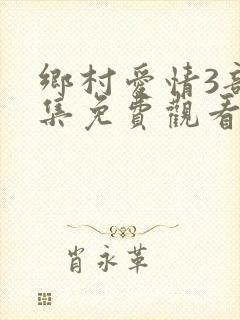 鄉村愛情3
集免費觀看
肖永革